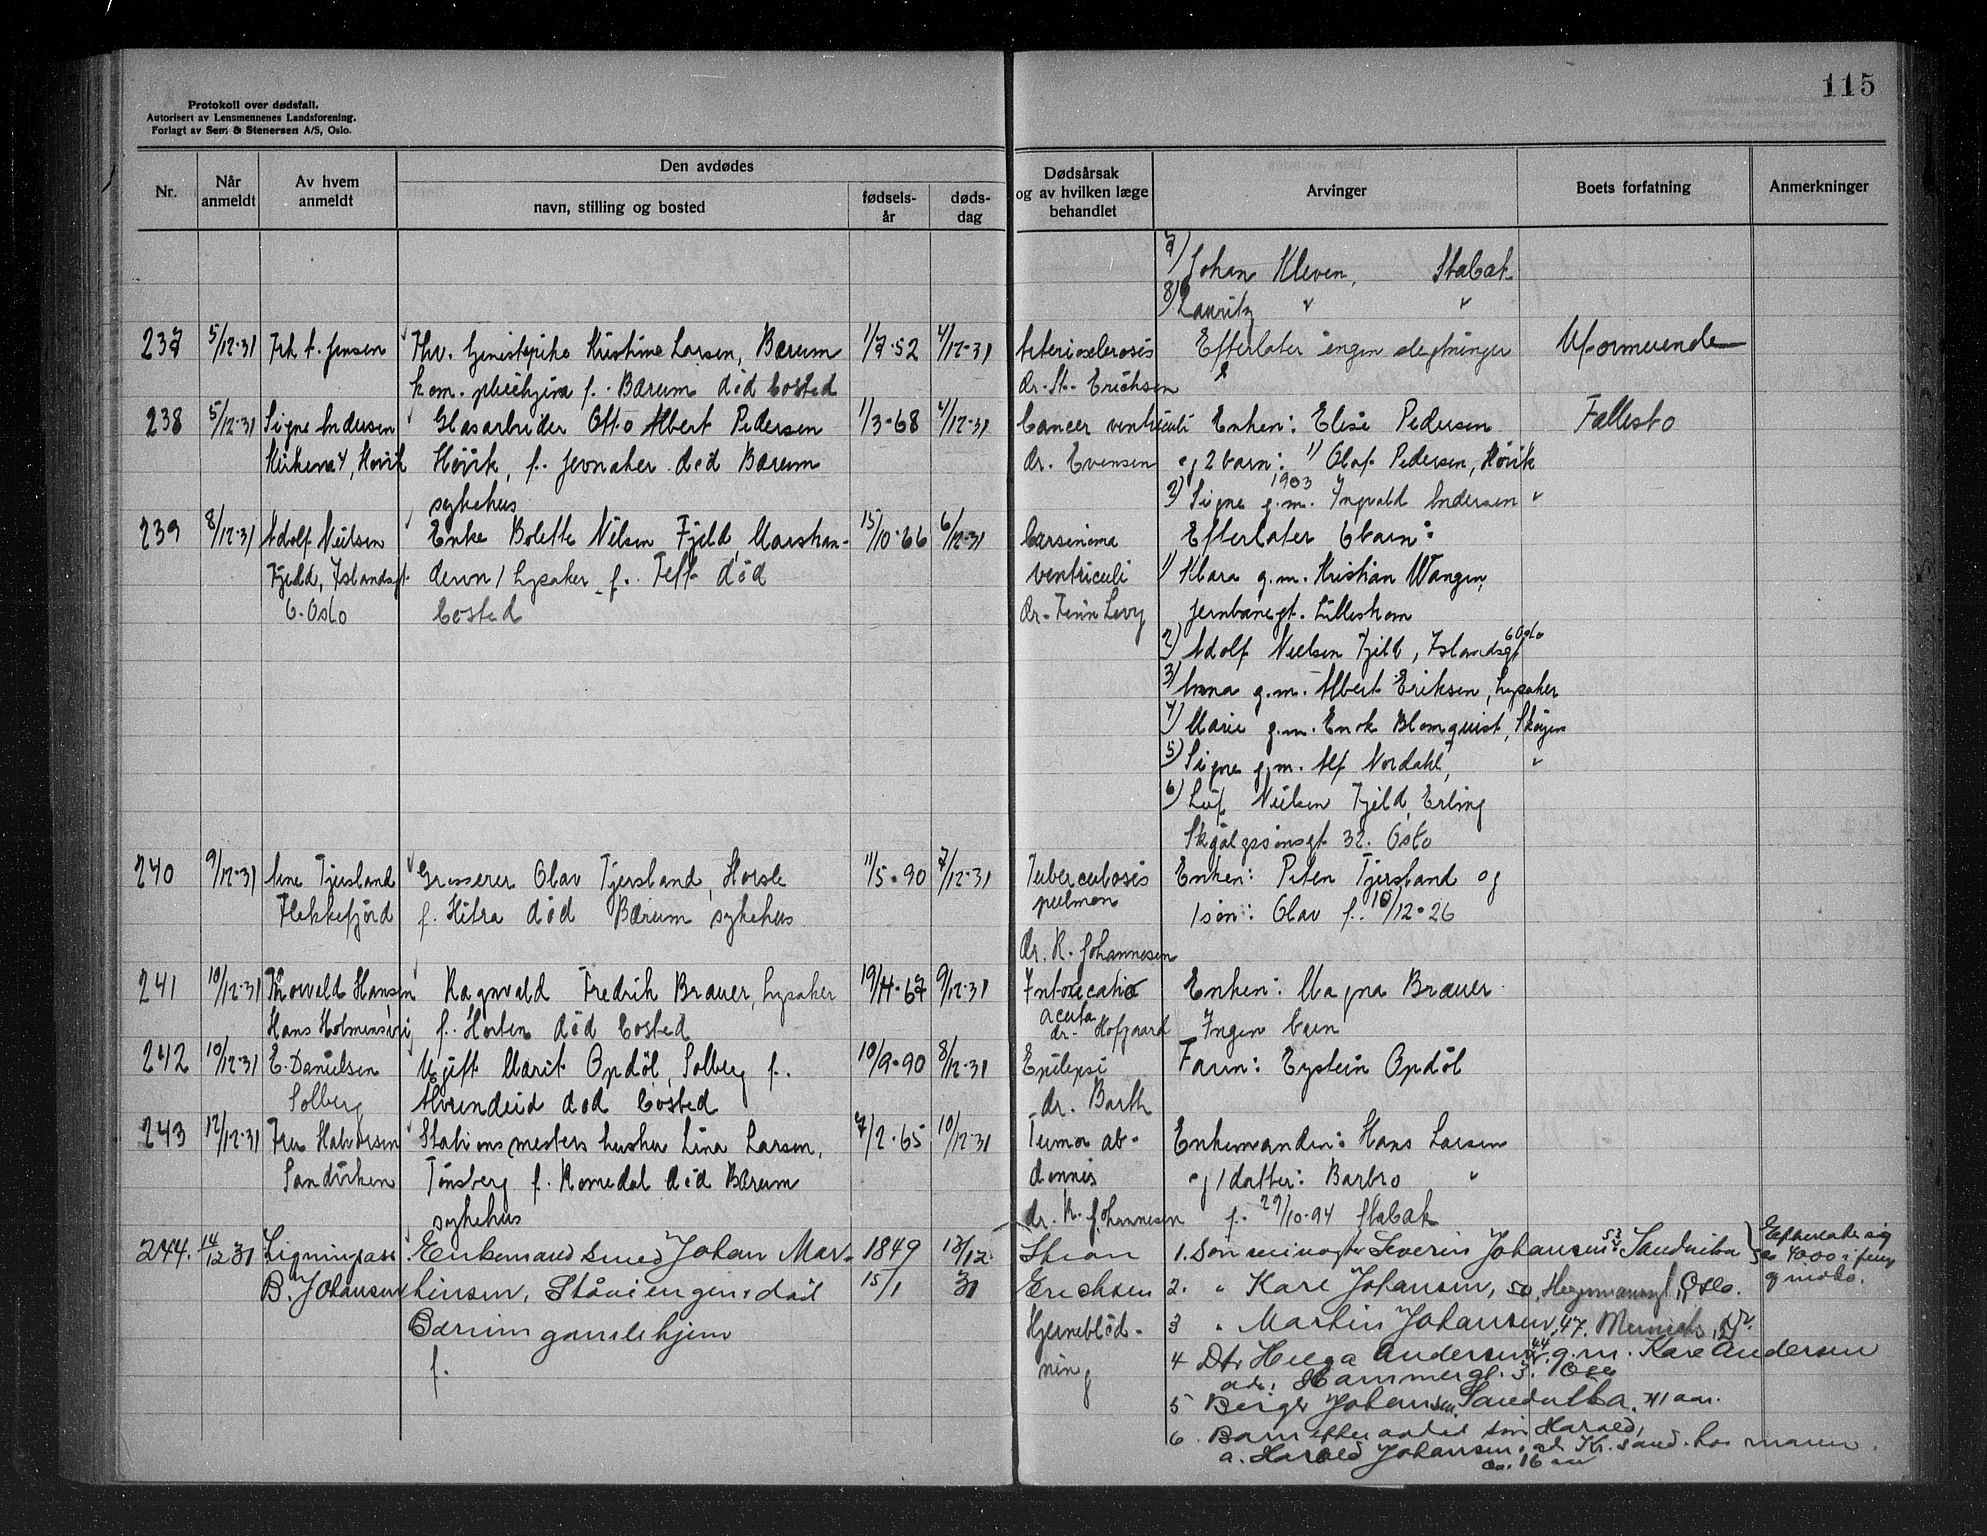 115
Protokoll over dødsfall.
Autorisert av Lensmennenes Landsforening.
Forlagt av Sem & Stenersen A/S, Oslo.
Nr.
Når anmeldt
Av hvem anmeldt
Den avdødes
navn, stilling og bosted
fødsels-år
døds-dag
Dødsårsak og av hvilken læge behandlet
Arvinger
Boets forfatning
Anmerkninger
7) Johan Kleven, Stabæk
8) Lauritz " "
237 5/12-31 Frk. Jensen Fhv. tjenestepike Kristine Larsen, Bærum 1/7-52 4/12-31 Arteriosclerosis Efterlater ingen slegtninger Uformuende
kom. pleiehjem f. Bærum død bosted dr. St. Erichsen
238 5/12-31 Signe Andersen Glasarbeider Otto Albert Pedersen 1/3-68 4/12-31 Cancer ventriculi Enken: Elise Pedersen Fællesbo
Kirkevn 4, Høvik Høvik, f. Jevnaker død Bærum dr. Evensen og 2 barn: 1) Olaf Pedersen, Høvik
sykehus 2) Signe 1903 g.m. Ingvald Andersen "
239 8/12-31 Adolf Nielsen Enke Bolette Nilsen Fjeld, Marshan- 15/10-66 6/12-31 Carsinoma Efterlater 6 barn:
Fjeld, Islandsgt. Lysaker f. Tefft død ventriculi 1) Klara g.m. Kristian Wangen,
6. Oslo bosted dr. Finn Levy Jernbanegt. Lillestrøm
2) Adolf Nielsen Fjeld, Islandsgt 6 Oslo
3) Anna g.m. Albert Eriksen, Lysaker
4) Marie g.m. Enok Blomquist, Skøyen
5) Signe g.m. Alf Nordahl, "
6) Leif Nielsen Fjeld, Erling
Skjalgssønsgt 32. Oslo
240 9/12-31 Arne Tjersland Grosserer Olav Tjersland, Hosle 11/5-90 7/12-31 Tuberculosis Enken: Tjersland og
Flekkefjord f. Hitra død Bærum sykehus pulmon 1 søn: Olav f. 10/12-26
dr. R. Johannesen
241 10/12-31 Thorvald Hansen Ragnvald Fredrik Brauer, Lysaker 19/4-67 9/12-31 Intoxicatio Enken: Magna Brauer
Hans Holmensvei f. Horten død bosted acuta dr. Hofgaard Ingen barn
242 10/12-31 E. Danielsen Ugift Marit Opdøl, Solberg f. 10/9-90 8/12-31 Epilepsi Faren: Eystein Opdøl
Solberg Ålvundeid død bosted dr. Barth
243 12/12-31 Fru Halvorsen Stationsmesters hustru Lina Larsen, 7/2-65 10/12-31 Tumor ab- Enkemanden: Hans Larsen
Sandviken Tønsberg f. Romedal død Bærum dominis og 1 datter: Barbro "
sykehus dr. R. Johannesen f. 29/10-94 Stabæk
244. 14/12 31 Ligningsass Enkemand smed Johan Mar- 1849 13/12 Strøm 1. Søn Severin Johansen 53 Sandvika Efterlater sig
B. Johansen tinsen, død 15/1 31 Erichsen 2. " Kare Johansen, 50, Oslo. 4000 i
Bærum gamlehjem Hjerneblød- 3 " Martin Johansen, 47, & møbl.
f. ning 4 Dtr Helga Andersen 44 g.m. Kare Andersen
adr. Hammergt. 3. Oslo
5 Birger Johansen Sandvika, 41 aar.
6. Barn efter avdød søn Harald,
a. Harald Johansen, Kr.sand. hos moren.
ca. 16 aar